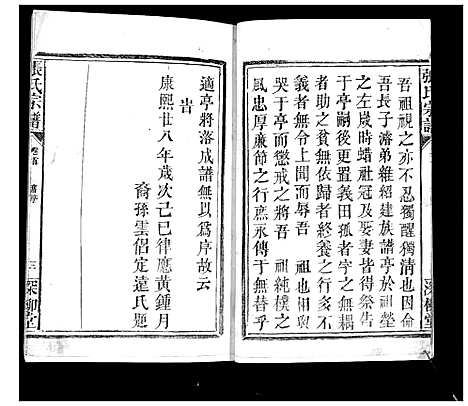 張氏宗譜
吾祖視之亦不忍獨醒獨清也因與
吾長子濬弟維紹建族譜亭於祖塋
之左歲時蜡社冠及娶妻皆得祭告
于亭下後更置義田孤者字之無耦
者助之貧無依歸者終養之行之無
義者無令上聞而辱吾 祖也相與
哭于亭而懲戒之將吾 祖純樸之
風忠厚廉節之行庶永傳于無替乎
適亭將落成譜無以爲序故云
旹
康熙廿八年歲次己巳律應黃鍾月
裔孫雲侶定遠氏題
張氏宗譜
卷首
舊序
三